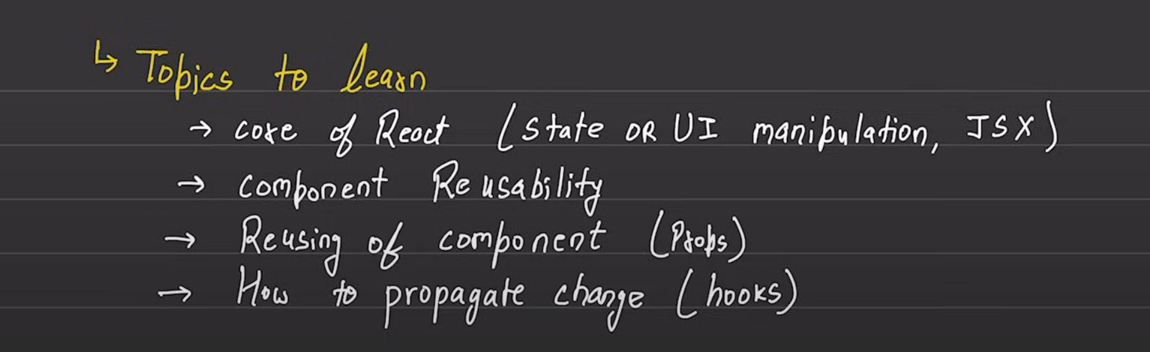 ↳ Topics to learn
→ core of React (state OR UI manipulation, JSX)
→ component Reusability
→ Reusing of component (Props)
→ How to propagate change (hooks)